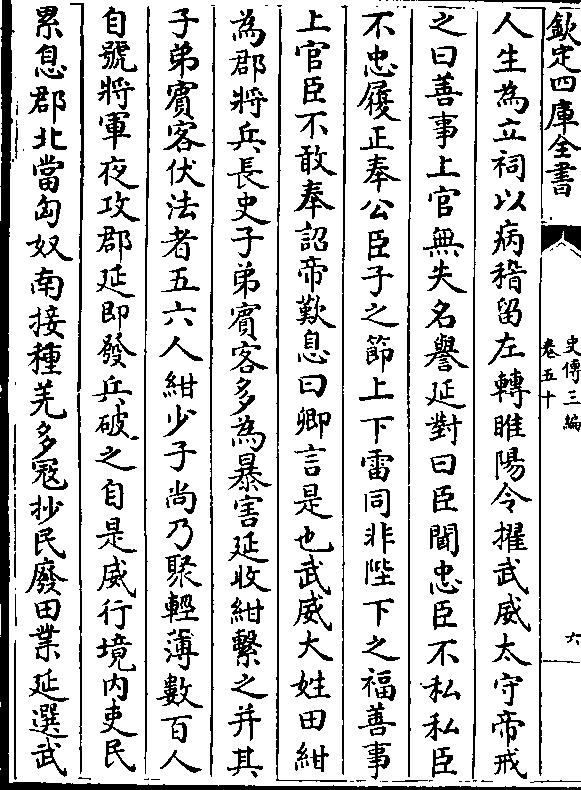 欽定四庫全書
史傳三編
卷五十
六
人生為立祠以病稽留左轉睢陽令擢武威太守帝戒
之曰善事上官無失名譽延對曰臣聞忠臣不私私臣
不忠履正奉公臣子之節上下雷同非陛下之福善事
上官臣不敢奉詔帝歎息曰卿言是也武威大姓田紺
為郡將兵長史子弟賓客多為暴害延收紺繫之并其
子弟賓客伏法者五六人紺少子尚乃聚輕薄數百人
自號將軍夜攻郡延即發兵破之自是威行境內吏民
累息郡北當匈奴南接種羌多宼抄民廢田業延選武